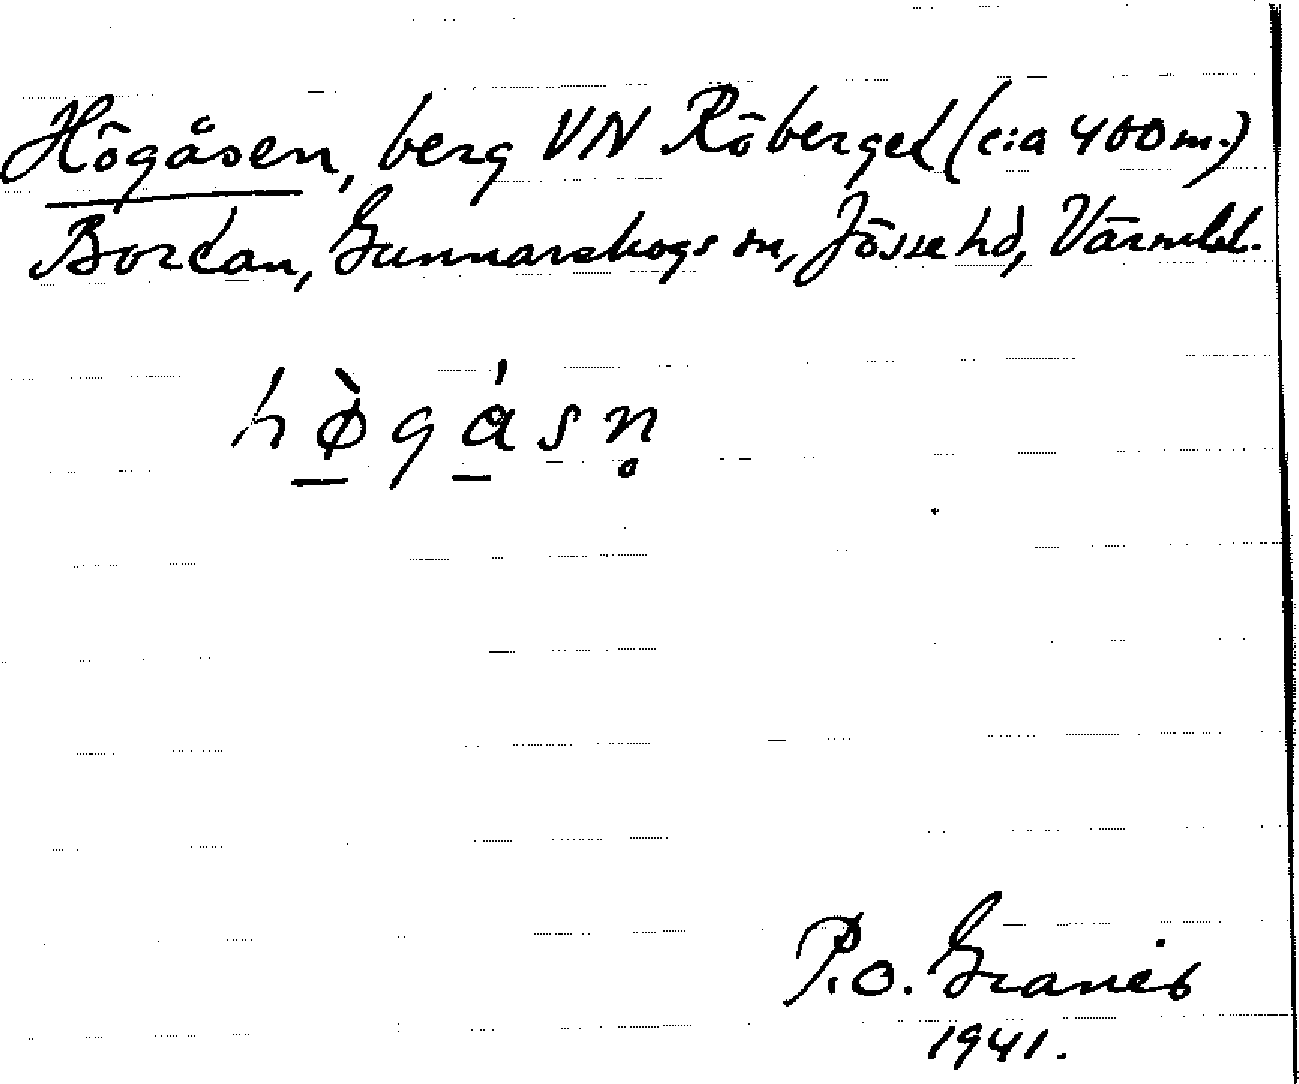 Högåsen, berg VN Röberget (c:a 400 m.)
Bortan, Gunnarskogs sn, Jösse hd, Värmld.
hø̀gásn̥
P.O. Granér
1941.